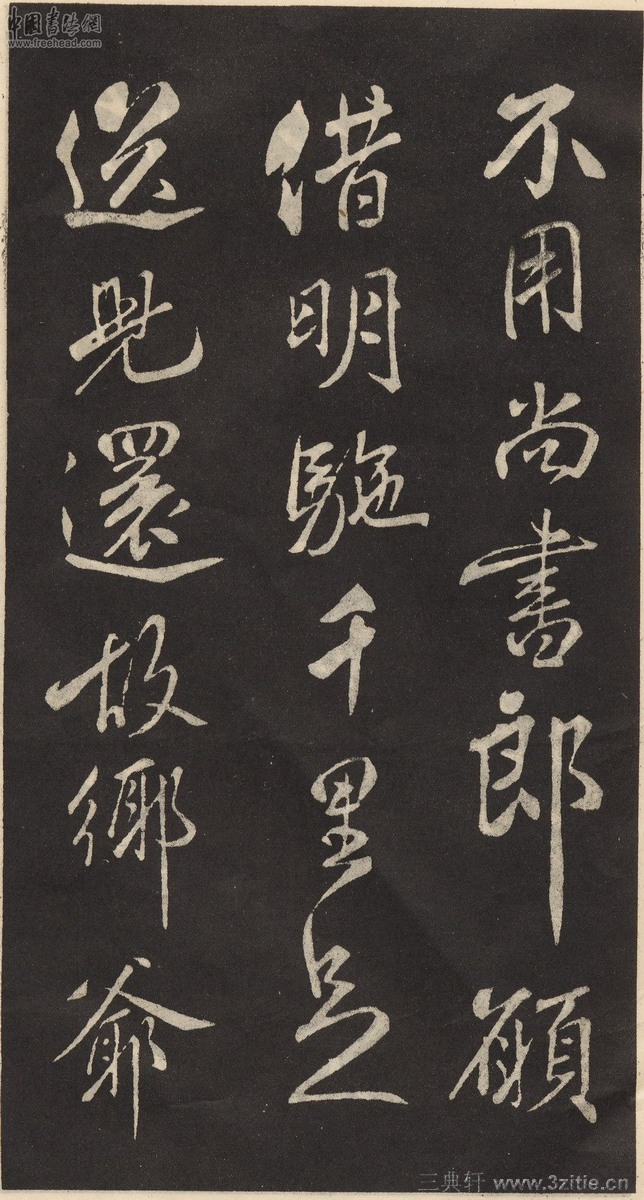 不用尚書郎願
借明駞千里足
送兒還故鄉爺
中国書法網
www.freehead.com
三典轩 www.3zitie.cn